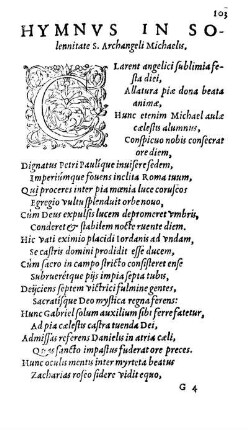 103
HYMNVS IN SO-
lennitate S. Archangeli Michaelis.
CLarent angelici sublimia fe-
sta diei,
Allatura piæ dona beata
animæ,
Hunc etenim Michael aulæ
cælestis alumnus,
Conspicuo nobis consecrat
ore diem,
Dignatus Petri Pauliq́ue inuisere sedem,
Imperiúmque fouens inclita Roma tuum,
Qui proceres inter pia mœnia luce coruscos
Egregio vultu splenduit orbe nouo,
Cùm Deus expulsis lucem depromeret vmbris,
Conderet & stabilem nocte ruente diem.
Hic vati eximio placidi Iordanis ad vndam,
Se castris domini prodidit esse ducem,
Cùm sacro in campo stricto consisteret ense
Subruerétque pijs impia septa tubis,
Deijciens septem victrici fulmine gentes,
Sacratísque Deo mystica regna ferens:
Hunc Gabriel solum auxilium sibi ferre fatetur,
Ad pia cælestis castra tuenda Dei,
Admissas referens Danielis in atria cæli,
Quas sancto impastus fuderat ore preces.
Hunc oculis mentis inter myrteta beatus
Zacharias roseo sidere vidit equo,
G 4